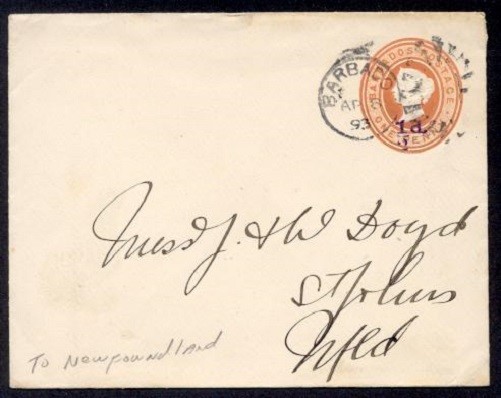 BARBADOS POSTAGE
ONE PENNY
1d.
BARBADOS
AP
93
Mess J. & W Boyd
St Johns
Nfld
To Newfoundland